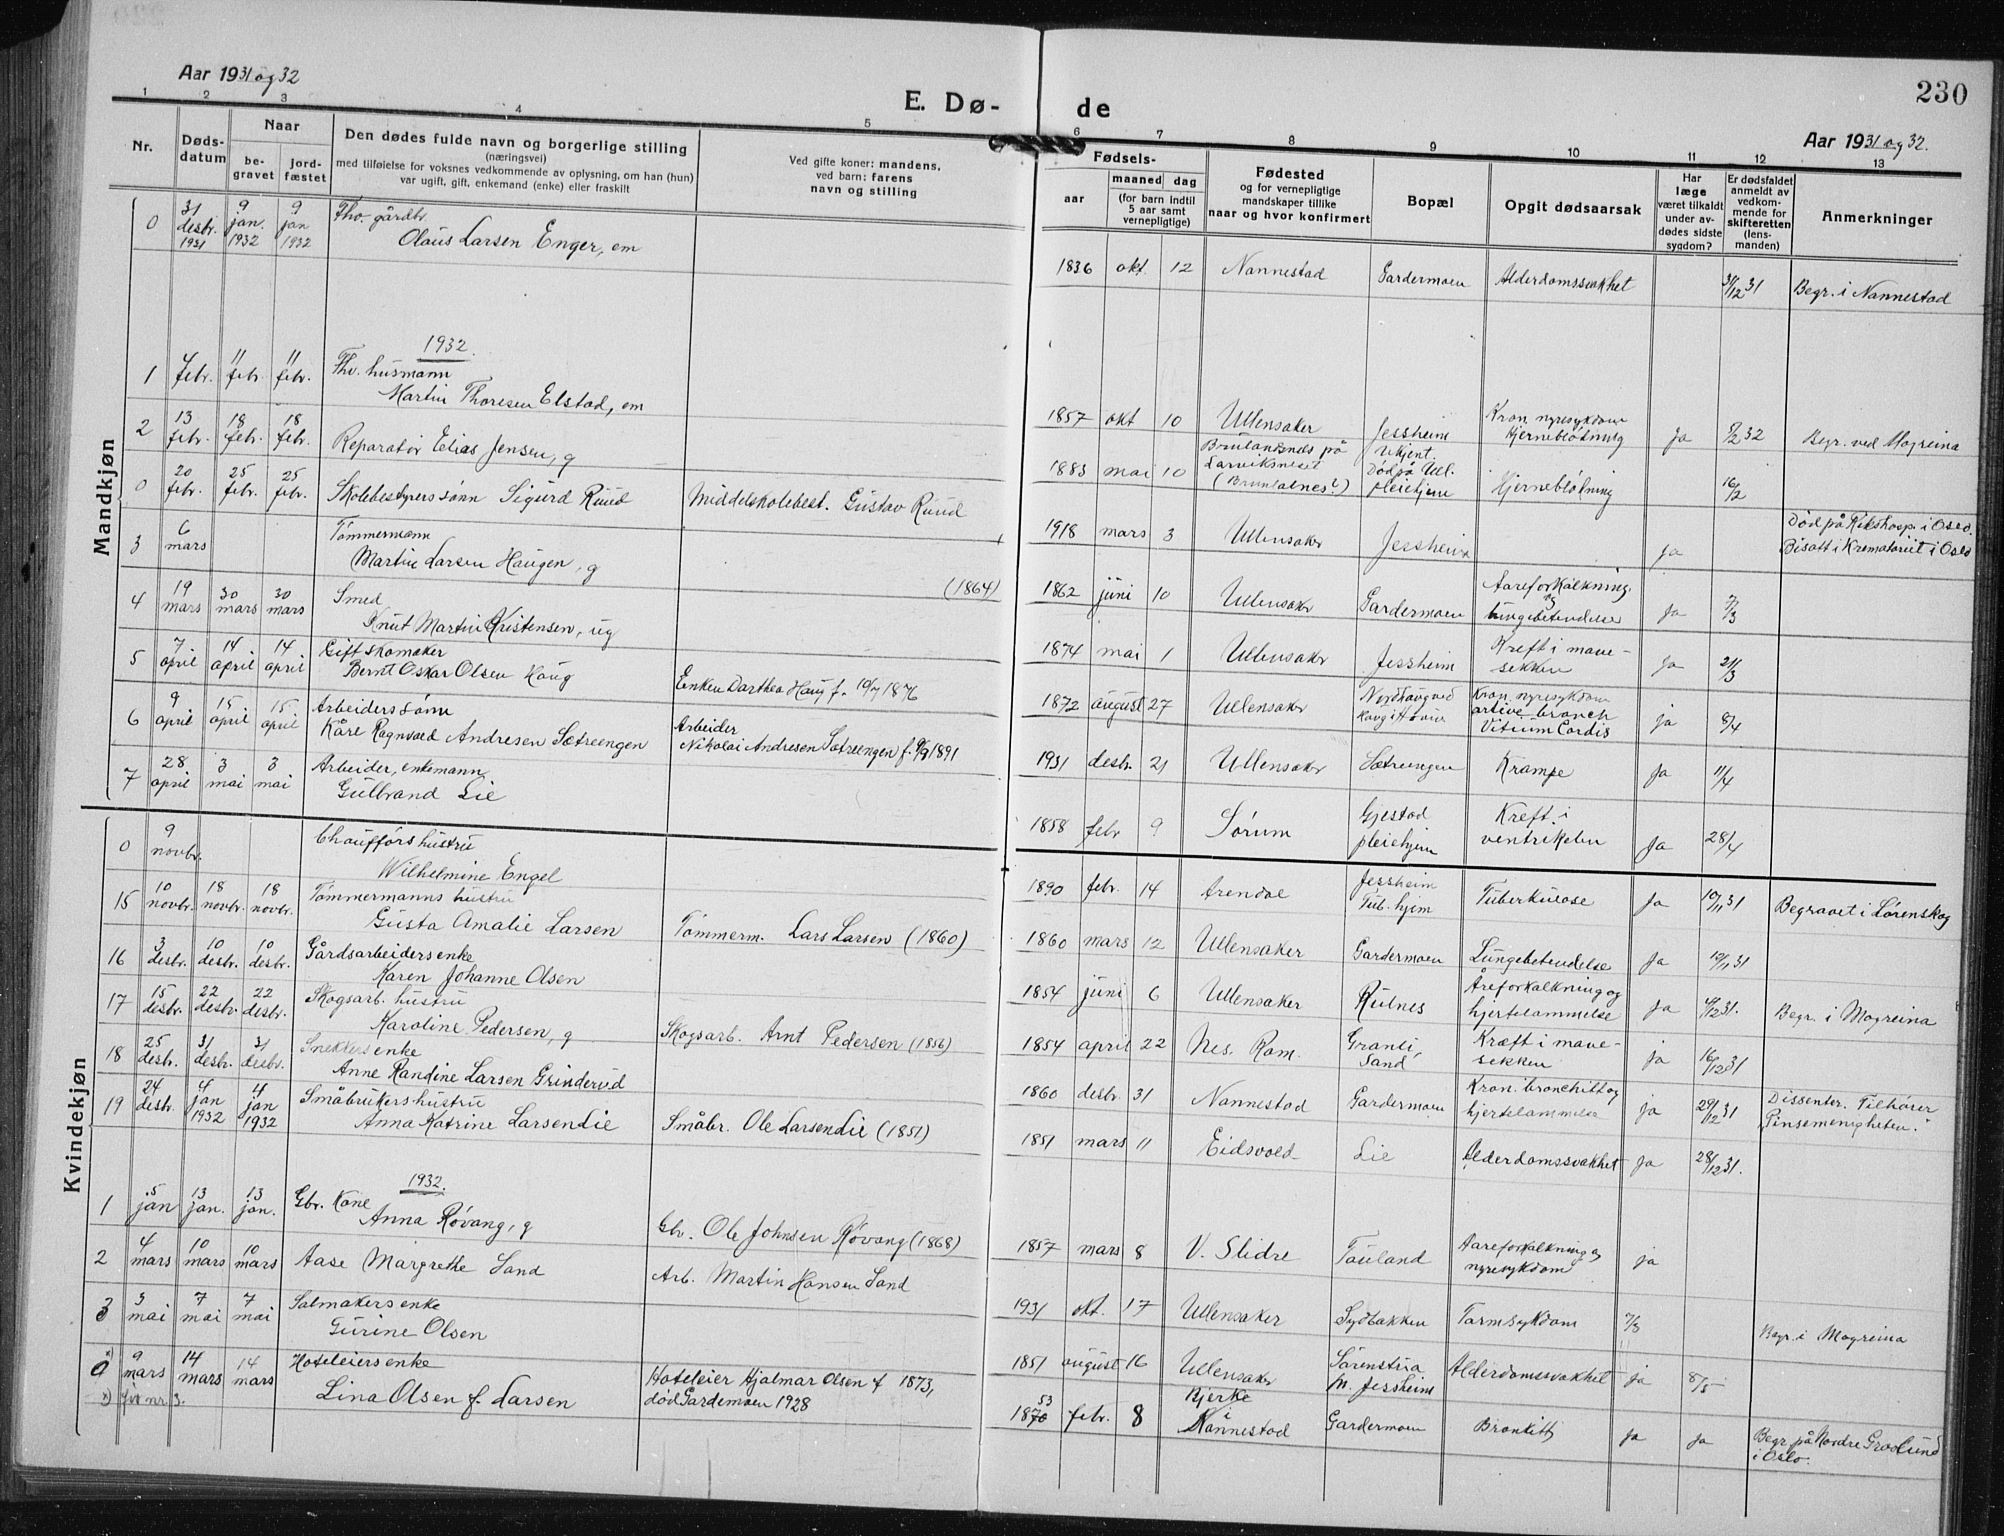 Aar 1931 og 32
E. Dø-
de
230
Aar 1931 og 32.
1 2 3 4 5 6 7 8 9 10 11 12 13
Nr.
Døds-
datum
Naar
be-
gravet
jord-
fæstet
Den dødes fulde navn og borgerlige stilling
(næringsvei)
med tilføielse for voksnes vedkommende av oplysning, om han (hun)
var ugift, gift, enkemand (enke) eller fraskilt
Ved gifte koner: mandens,
ved barn: farens
navn og stilling
Fødsels-
aar
maaned
dag
(for barn indtil
5 aar samt
vernepligtige)
Fødested
og for vernepligtige
mandskaper tillike
naar og hvor konfirmert
Bopæl
Opgit dødsaarsak
Har
læge
været tilkaldt
under av-
dødes sidste
sygdom?
Er dødsfaldet
anmeldt av
vedkom-
mende for
skifteretten
(lens-
manden)
Anmerkninger
Mandkjøn
0 31 desbr. 1931 9 jan. 1932 9 jan 1932 Fho. gårdbr.
Olaus Larsen Enger, em
1836 okt. 12 Nannestad Gardermoen Alderdomssvakhet 31/12 31 Begr. i Nannestad
1932.
1 4 febr. 11 febr. 11 febr. Fhv. husmann
Martin Thoresen Elstad, em
1857 okt 10 Ullensaker Jessheim Kron. nyresykdom
Hjerneblødning Ja 5/2 32 Begr. ved Mogreina
2 13 febr. 18 febr. 18 febr. Reparatør Elias Jensen, g
1883 mai 10 Brunlanæs på
Larviksneset
(Brunlalnes?) Ukjent.
Død på Ull.
pleiehjem Hjerneblødning 16/2
0 20 febr. 25 febr. 25 febr. Skolebestyrers sønn Sigurd Ruud Middelskolebest. Gustav Ruud
1918 mars 3 Ullensaker Jessheim Ja Død på Rikshosp. i Oslo.
Bisatt i Krematoriet i Oslo
3 6 mars Tømmermann
Martin Larsen Haugen, g (1864)
1862 juni 10 Ullensaker Gardermoen Aareforkalkning
og
lungebetendelse Ja 7/3
4 19 mars 30 mars 30 mars Smed
Knut Martin Kristensen, ug
1874 mai 1 Ullensaker Jessheim Kreft i mave-
sekken Ja 21/3
5 7 april 14 april 14 april Gift skomaker
Bernt Oskar Olsen Haug Enken Darthea Haug f. 10/7 1876
1872 august 27 Ullensaker Nordhaug ved
Haug i Hovin Kron. nyresykdom
artive branch
Vitium Cordis ja 8/4
6 9 april 15 april 15 april Arbeiders sønn
Kåre Ragnvald Andresen Sætreengen Arbeider
Nikolai Andresen Sætreengen f. 8/9 1891
1931 desbr. 21 Ullensaker Sætreengen Krampe Ja 11/4
7 28 april 3 mai 3 mai Arbeider, enkemann
Gulbrand Lie
1858 febr 9 Sørum Gjestad
pleiehjem Kreft i
ventrikelen Ja 28/4
Kvindekjøn
0 9 novbr. Chaufførs hustru
Wilhelmine Engel
1890 febr. 14 Arendal Jessheim
Tub. hjem Tuberkulose Ja 10/11 31 Begravet i Lørenskog
15 10 novbr. 18 novbr. 18 novbr. Tømmermanns hustru
Gusta Amalie Larsen Tømmerm. Lars Larsen (1860)
1860 mars 12 Ullensaker Gardermoen Lungebetendelse Ja 12/11 31
16 3 desbr. 10 desbr. 10 desbr. Gårdsarbeiders enke
Karen Johanne Olsen
1854 juni 6 Ullensaker Rulnes Åreforkalkning og
hjertelammelse Ja 4/12 31. Begr. i Mogreina
17 15 desbr. 22 desbr. 22 desbr. Skogsarb. hustru
Karoline Pedersen, g Skogsarb. Arnt Pedersen (1856)
1854 april 22 Nes. Rom. Granli,
Sand Kræft i mave-
sekken ja 16/12 31
18 25 desbr. 31 desbr. 31 desbr. Snekkers enke
Anne Randine Larsen Grinderud
1860 desbr. 31 Nannestad Gardermoen Kron. bronchitt og
hjertelammelse ja 29/12 31 Dissenter. Tilhører
Pinsemenigheten.
19 24 desbr. 4 jan 1932 4 jan 1932 Småbrukers hustru
Anna Katrine Larsen Lie Småbr. Ole Larsen Lie (1851)
1851 mars 11 Eidsvold Lie Alderdomssvakhet Ja 28/12 31.
1932.
1 5 jan 13 jan. 13 jan. Gbr. Kone
Anna Røvang, g Gbr. Ole Johnsen Røvang (1868)
1857 mars 8 V. Slidre Tauland Aareforkalkning og
nyresykdom ja
2 4 mars 10 mars 10 mars Aase Margrethe Sand Arb. Martin Hansen Sand
1931 okt. 17 Ullensaker Sydbakken Tarmsykdom 7/3 Begr. i Mogreina
3 3 mai 7 mai 7 mai Salmakers enke
Gurine Olsen
1851 august 16 Ullensaker Sørenstua
pr. Jessheim Alderdomssvakhet Ja 8/5
0 x) 9 mars 14 mars 14 mars Hoteleiers enke
Lina Olsen f. Larsen Hoteleier Hjalmar Olsen f 1873,
død Gardemoen 1928
x) før nr. 3.
53
1870 febr. 8 Bjerke
Nannestad Gardermoen Bronkitt Ja Ja Begr. på Nordre Gravlund
i Oslo.